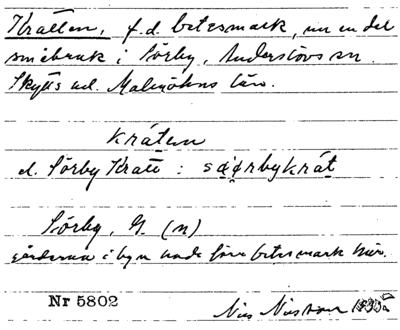 Kratten, f.d. betesmark, nu en del
småbruk i Sörby, Anderslövs sn.
Skytts hd. Malmöhus län.
kráten
el. Sörby Kratt : sǫ́ørbykrát
Sörby, G. (n)
gårdarna i byn hade förr betesmark här.
Nr 5802
Nils Nilsson 1933